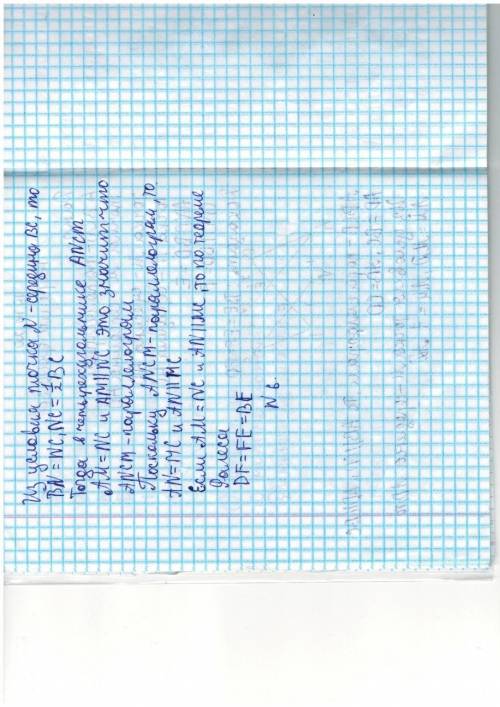 Из условия точка N - середина BC, то
BN = NC, NC = 1/2 BC
Тогда в четырехугольнике ANCM
AM = NC и AM || NC это значит что
ANCM - параллелограм
Поскольку ANCM - параллелограм, то
AN = MC и AN || MC
Если AM = NC и AN || MC, то по теореме
Фалеса
DF = FE = BE
N 6